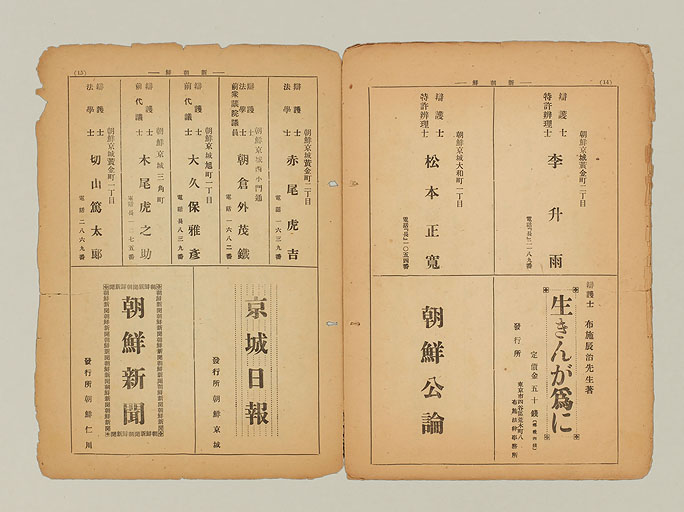 (14)
新朝鮮
辯護士
特許辨理士
李升雨
朝鮮京城黃金町二丁目
電話「長」二一八九番
辯護士
特許辨理士
松本正寬
朝鮮京城大和町一丁目
電話「長」二〇五四番
辯護士 布施辰治先生著
生きんが爲に
定價金五十錢
發行所
東京市四谷區荒木町八
布施法律事務所
朝鮮公論
(15)
新朝鮮
辯護士
法學士
赤尾虎吉
朝鮮京城黃金町二丁目
電話一六三九番
辯護士
法學士
前衆議院議員
朝倉外茂鐵
朝鮮京城西小門通
電話一六八二番
辯護士
前代議士
大久保雅彥
朝鮮京城旭町二丁目
電話長八三九番
辯護士
前代議士
木尾虎之助
朝鮮京城三角町
電話長一二七五番
辯護士
法學士
切山篤太郞
朝鮮京城黃金町一丁目
電話二八六九番
京城日報
發行所 朝鮮京城
朝鮮新聞
發行所 朝鮮仁川